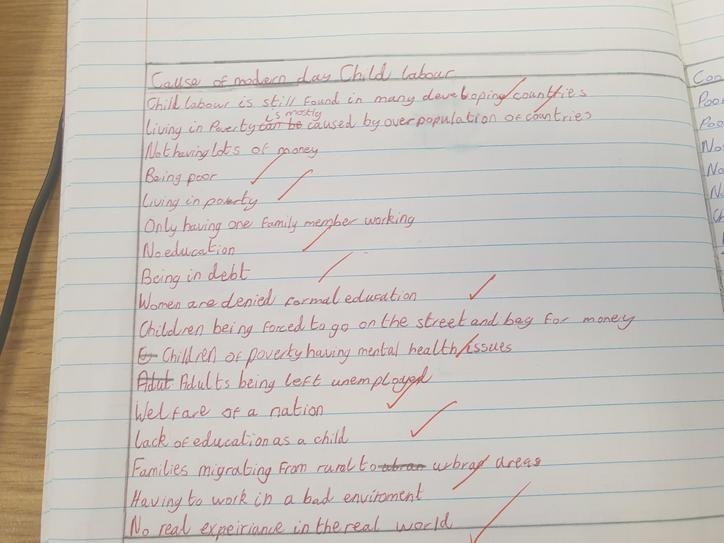 Cause of modern day Child labour
Child labour is still found in many developing countries
Living in Poverty can be is mostly caused by over population of countries
Not having lots of money
Being poor
Living in poverty
Only having one family member working
No education
Being in debt
Women are denied formal education
Children being forced to go on the street and beg for money
Children of poverty having mental health issues
Adut Adults being left unemployed
Welfare of a nation
Lack of education as a child
Families migrating from rural to ubran urbran areas
Having to work in a bad enviroment
No real expeiriance in the real world
Con
Poor
Poo
No
No
N